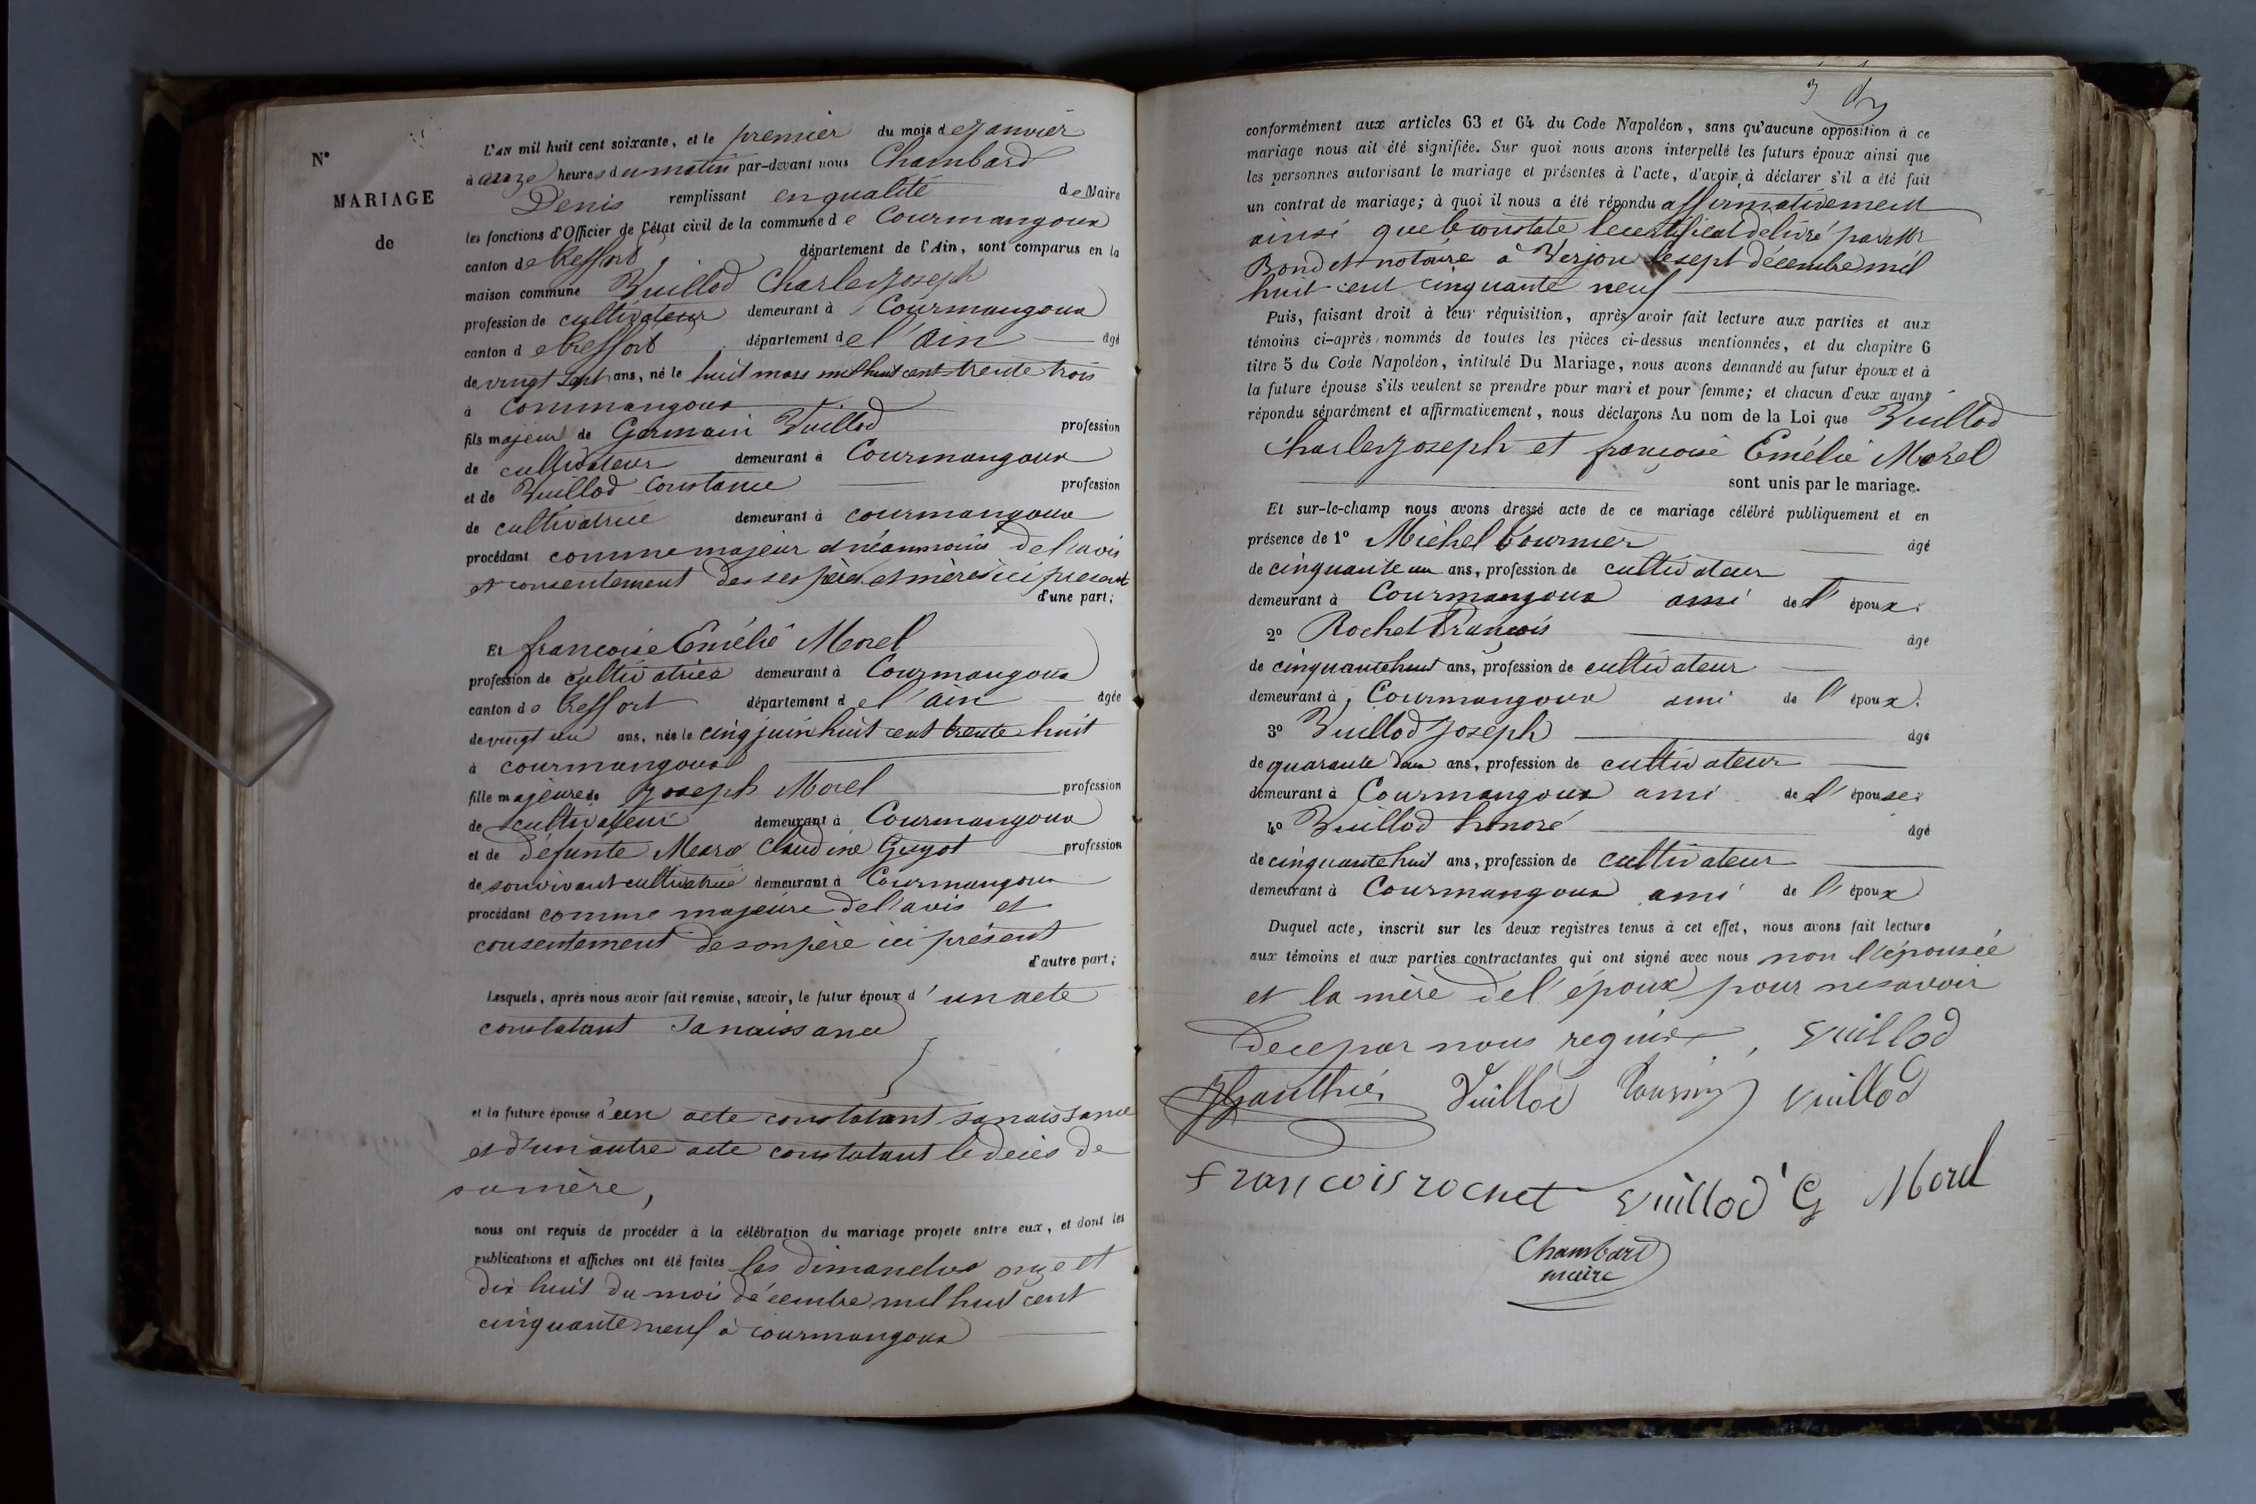 N°
MARIAGE
de
L'AN mil huit cent soixante, et le premier du mois de Janvier
à onze heures du matin par-devant nous Chambard
Denis remplissant en qualité de Maire
les fonctions d'Officier de l'état civil de la commune de Courmangoux
canton de Treffort, département de l'Ain, sont comparus en la
maison commune Vuillod Charles Joseph
profession de cultivateur demeurant à Courmangoux
canton de Treffort département de l'Ain âgé
de vingt sept ans, né le huit mars mil huit cent trente trois
à Commangoux
fils majeur de Germain Vuillod profession
de cultivateur demeurant à Courmangoux
et de Vuillod Constance profession
de cultivatrice demeurant à Courmangoux
procédant comme majeur et néanmoins de l'avis
et consentement de ses père et mère ici présent
d'une part;
Et françoise Emélie Morel
profession de cultivatrice demeurant à Courmangoux
canton de Treffort département de l'Ain âgée
de vingt un ans, née le cinq juin huit cent trente huit
à courmangoux
fille majeure de Joseph Morel profession
de cultivateur demeurant à Courmangoux
et de défunte Claudine Guyot profession
de son vivant cultivatrice demeurant à Courmangoux
procédant comme majeure de l'avis et
consentement de son père ici présent
d'autre part;
Lesquels, après nous avoir fait remise, savoir, le futur époux d'un acte
constatant sa naissance
et la future épouse d'un acte constatant sa naissance
et d'un autre acte constatant le décès de
sa mère,
nous ont requis de procéder à la célébration du mariage projeté entre eux, et dont les
publications et affiches ont été faites les dimanches onze et
dix huit du mois décembre mil huit cent
cinquante neuf à courmangoux
3
conformément aux articles 63 et 64 du Code Napoléon, sans qu'aucune opposition à ce
mariage nous ait été signifiée. Sur quoi nous avons interpellé les futurs époux ainsi que
les personnes autorisant le mariage et présentes à l'acte, d'avoir à déclarer s'il a été fait
un contrat de mariage; à quoi il nous a été répondu affirmativement
ainsi que le constate le certificat délivré par Mr
Bondet notaire à Verjon le sept décembre mil
huit cent cinquante neuf
Puis, faisant droit à leur réquisition, après avoir fait lecture aux parties et aux
témoins ci-après nommés de toutes les pièces ci-dessus mentionnées, et du chapitre 6
titre 5 du Code Napoléon, intitulé Du Mariage, nous avons demandé au futur époux et à
la future épouse s'ils veulent se prendre pour mari et pour femme; et chacun d'eux ayant
répondu séparément et affirmativement, nous déclarons Au nom de la Loi que Vuillod
Charles Joseph et françoise Emélie Morel
sont unis par le mariage.
Et sur-le-champ nous avons dressé acte de ce mariage célébré publiquement et en
présence de 1° Michel Fournier âgé
de cinquante un ans, profession de cultivateur
demeurant à Courmangoux ami de l'époux.
2° Rochet François âgé
de cinquante huit ans, profession de cultivateur
demeurant à Courmangoux ami de l'époux.
3° Vuillod Joseph âgé
de quarante deux ans, profession de cultivateur
demeurant à Courmangoux ami de l'épouse.
4° Vuillod honoré âgé
de cinquante huit ans, profession de cultivateur
demeurant à Courmangoux ami de l'époux
Duquel acte, inscrit sur les deux registres tenus à cet effet, nous avons fait lecture
aux témoins et aux parties contractantes qui ont signé avec nous non l'épousée
et la mère de l'époux pour ne savoir
de ce par nous requis, Vuillod
JGauthier Vuillod vuillod
françois rochet vuillod G Morel
Chambard
maire